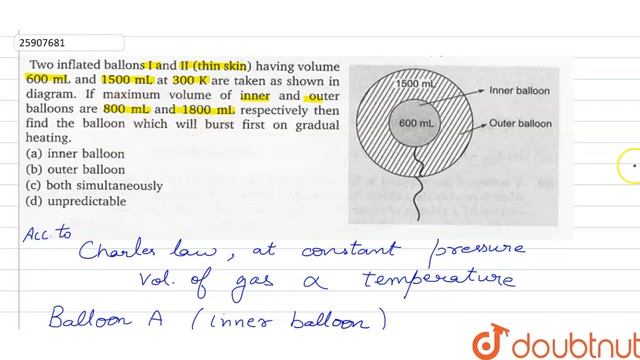 25907681
Two inflated ballons I and II (thin skin) having volume
600 mL and 1500 mL at 300 K are taken as shown in
diagram. If maximum volume of inner and outer
balloons are 800 mL and 1800 mL respectively then
find the balloon which will burst first on gradual
heating.
(a) inner balloon
(b) outer balloon
(c) both simultaneously
(d) unpredictable
1500 mL
Inner balloon
600 mL
Outer balloon
Acc. to
Charles law, at constant pressure
Vol. of gas ∝ temperature
Balloon A (inner balloon)
doubtnut